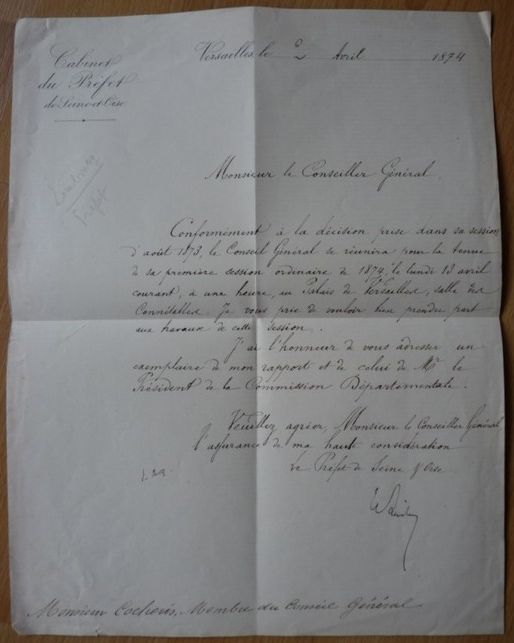 Cabinet
du Préfet
de Seine et Oise
Versailles le 2 Avril 1874
Préfet
Monsieur le Conseiller Général
Conformément à la décision prise dans sa session
d'août 1873, le Conseil Général se réunira pour la tenue
de sa première session ordinaire de 1874, le lundi 13 avril
courant, à une heure, au Palais de Versailles, salle des
Connétables. Je vous prie de vouloir bien prendre part
aux travaux de cette session.
J'ai l'honneur de vous adresser un
exemplaire de mon rapport et de celui de Mr le
Président de la Commission Départementale.
Veuillez agréer, Monsieur le Conseiller Général,
l'assurance de ma haute considération
Le Préfet de Seine & Oise
Monsieur Cocheris, Membre du Conseil Général